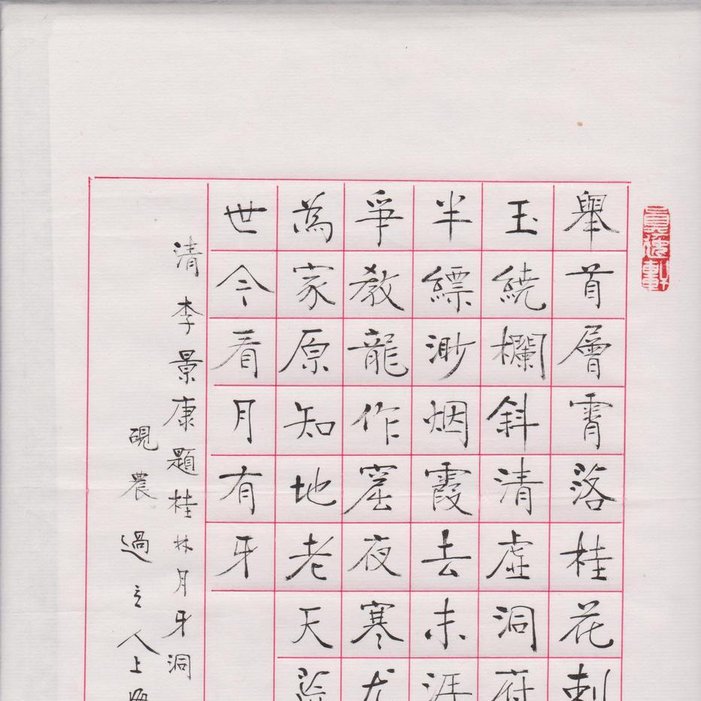 舉首層霄落桂花刺
玉繞欄斜清虛洞府
半縹渺烟霞去未涯
爭教龍作窟夜寒
為家原知地老天荒
世今看月有牙
清李景康題桂林月牙洞
硯農過立人上